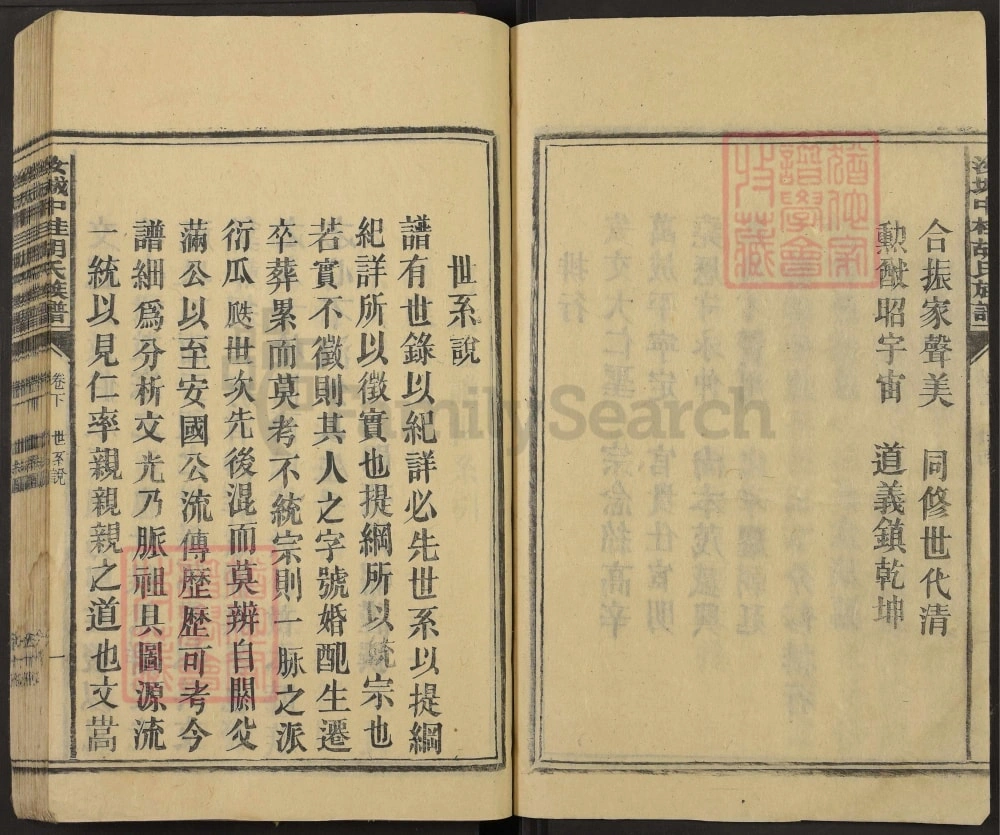 合振家聲美　同修世代清
勳猷昭宇宙　道義鎮乾坤
世系說
譜有世錄以紀詳必先世系以提綱
紀詳所以徵實也提綱所以統宗也
若實不徵則其人之字號婚配生遷
卒葬累而莫考不統宗則一脉之派
衍瓜瓞世次先後混而莫辨自閼父
滿公以至安國公流傳歷歷可考今
譜細為分析文光乃脈祖具圖源流
一統以見仁率親親親之道也文嵩
汝城中桂胡氏族譜
卷下　世系說
一
猶他家譜學會收藏
FamilySearch